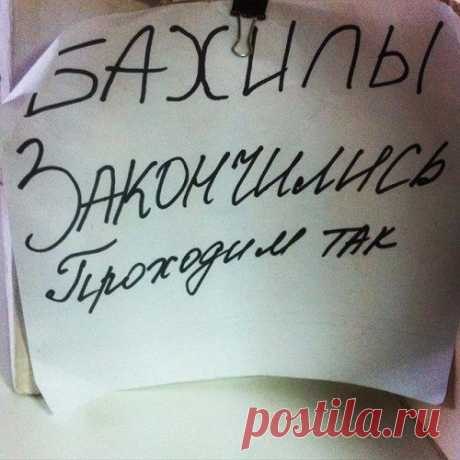 БАХИЛЫ
ЗАКОНЧИЛИСЬ
Проходим ТАК
postila.ru